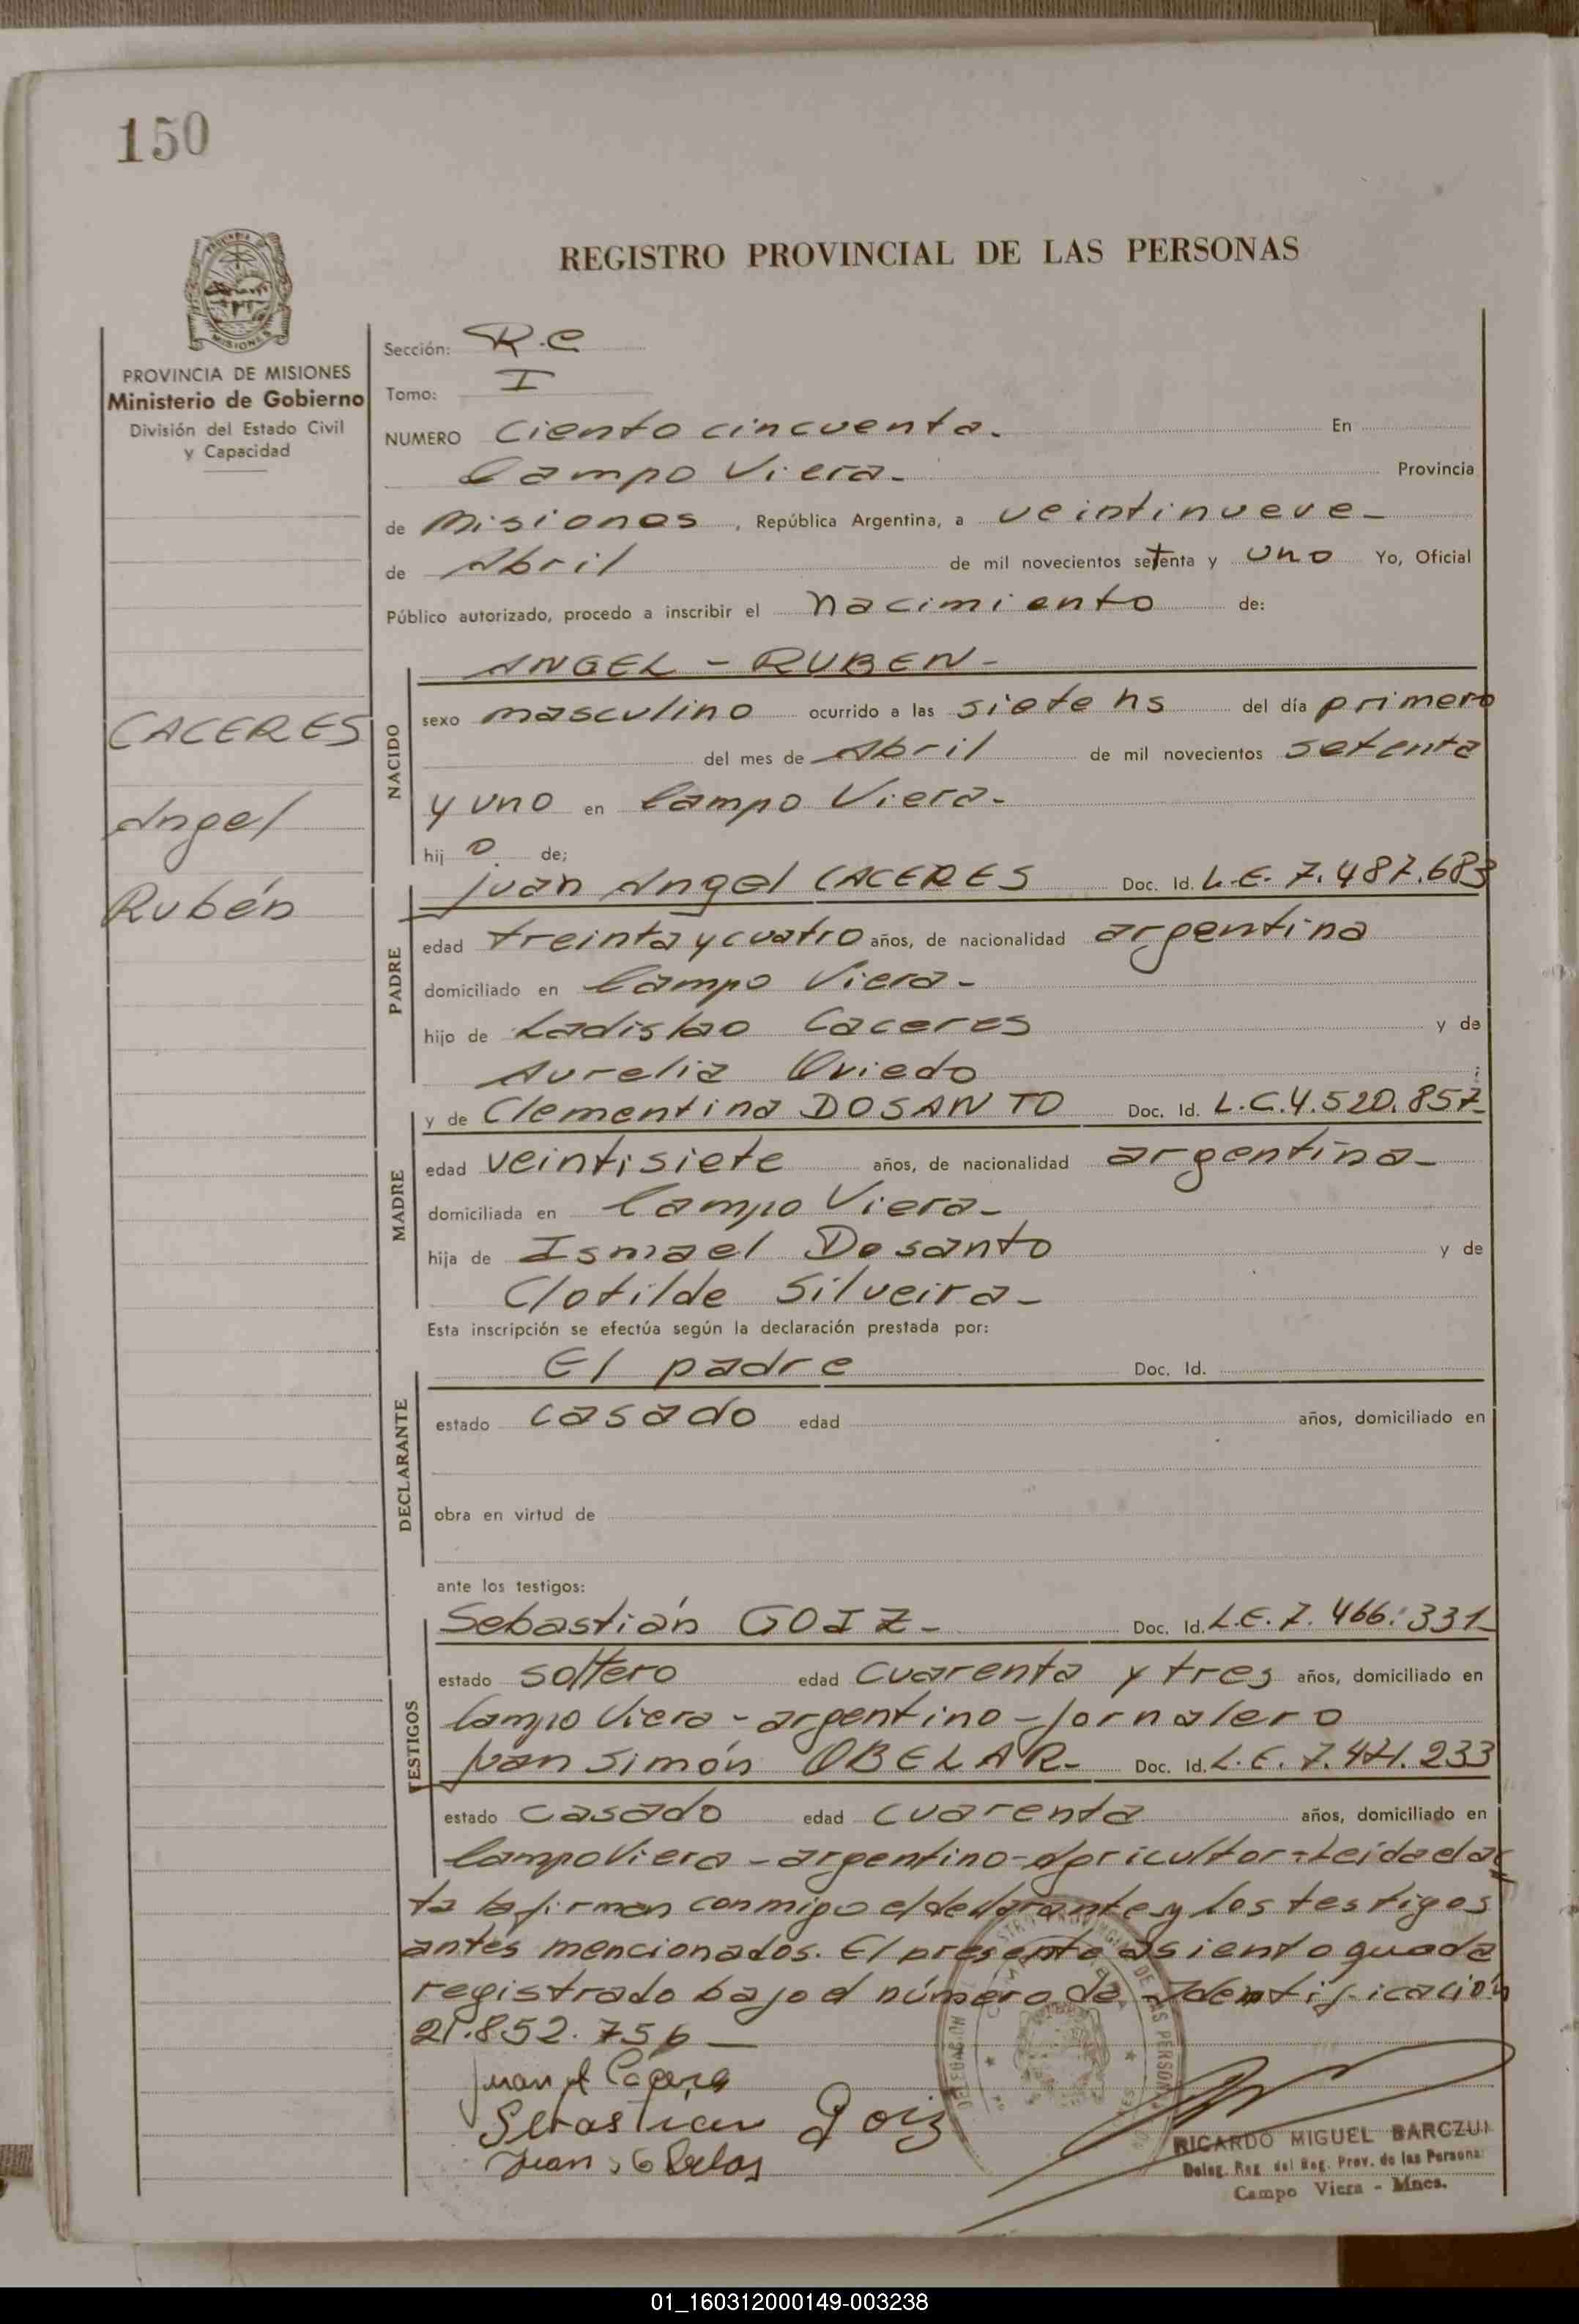 150
REGISTRO PROVINCIAL DE LAS PERSONAS
MISIONES
PROVINCIA DE MISIONES
Ministerio de Gobierno
División del Estado Civil
y Capacidad
CACERES
Angel
Rubén
Sección: R.C
Tomo: I
NUMERO Ciento cincuenta. En
Campo Viera. Provincia
de Misiones, República Argentina, a veintinueve
de Abril de mil novecientos setenta y uno Yo, Oficial
Público autorizado, procedo a inscribir el nacimiento de:
ANGEL - RUBEN -
NACIDO
sexo masculino ocurrido a las siete hs del día primero
del mes de Abril de mil novecientos setenta
y uno en Campo Viera-
hij o de;
Juan Angel CACERES Doc. Id. L.E. 7.487.683
PADRE
edad treinta y cuatro años, de nacionalidad argentina
domiciliado en Campo Viera-
hijo de Ladislao Caceres y de
Aurelia Oviedo ;
y de Clementina DOSANTO Doc. Id. L.C. 4.520.857-
MADRE
edad veintisiete años, de nacionalidad argentina-
domiciliada en Campo Viera-
hija de Ismael Dosanto y de
Clotilde Silveira-
Esta inscripción se efectúa según la declaración prestada por:
El padre Doc. Id.
DECLARANTE
estado casado edad años, domiciliado en
obra en virtud de
ante los testigos:
Sebastián GOIZ- Doc. Id. L.E. 7.466.331-
TESTIGOS
estado soltero edad cuarenta y tres años, domiciliado en
Campo Viera - argentino - jornalero
Juan Simón OBELAR- Doc. Id. L.E.
estado casado edad cuarenta años, domiciliado en
Campo Viera - argentino - agricultor - Leida el ac
ta la firman conmigo el declarante y los testigos
antes mencionados. El presente asiento queda
registrado bajo el número de Identificación
21.852.756-
Juan A Cacere
Sebastian Goiz
Juan S Obelar
RICARDO MIGUEL BARCZUK
Deleg. Reg. del Reg. Prov. de las Personas
Campo Viera - Mnes.
01_160312000149-003238